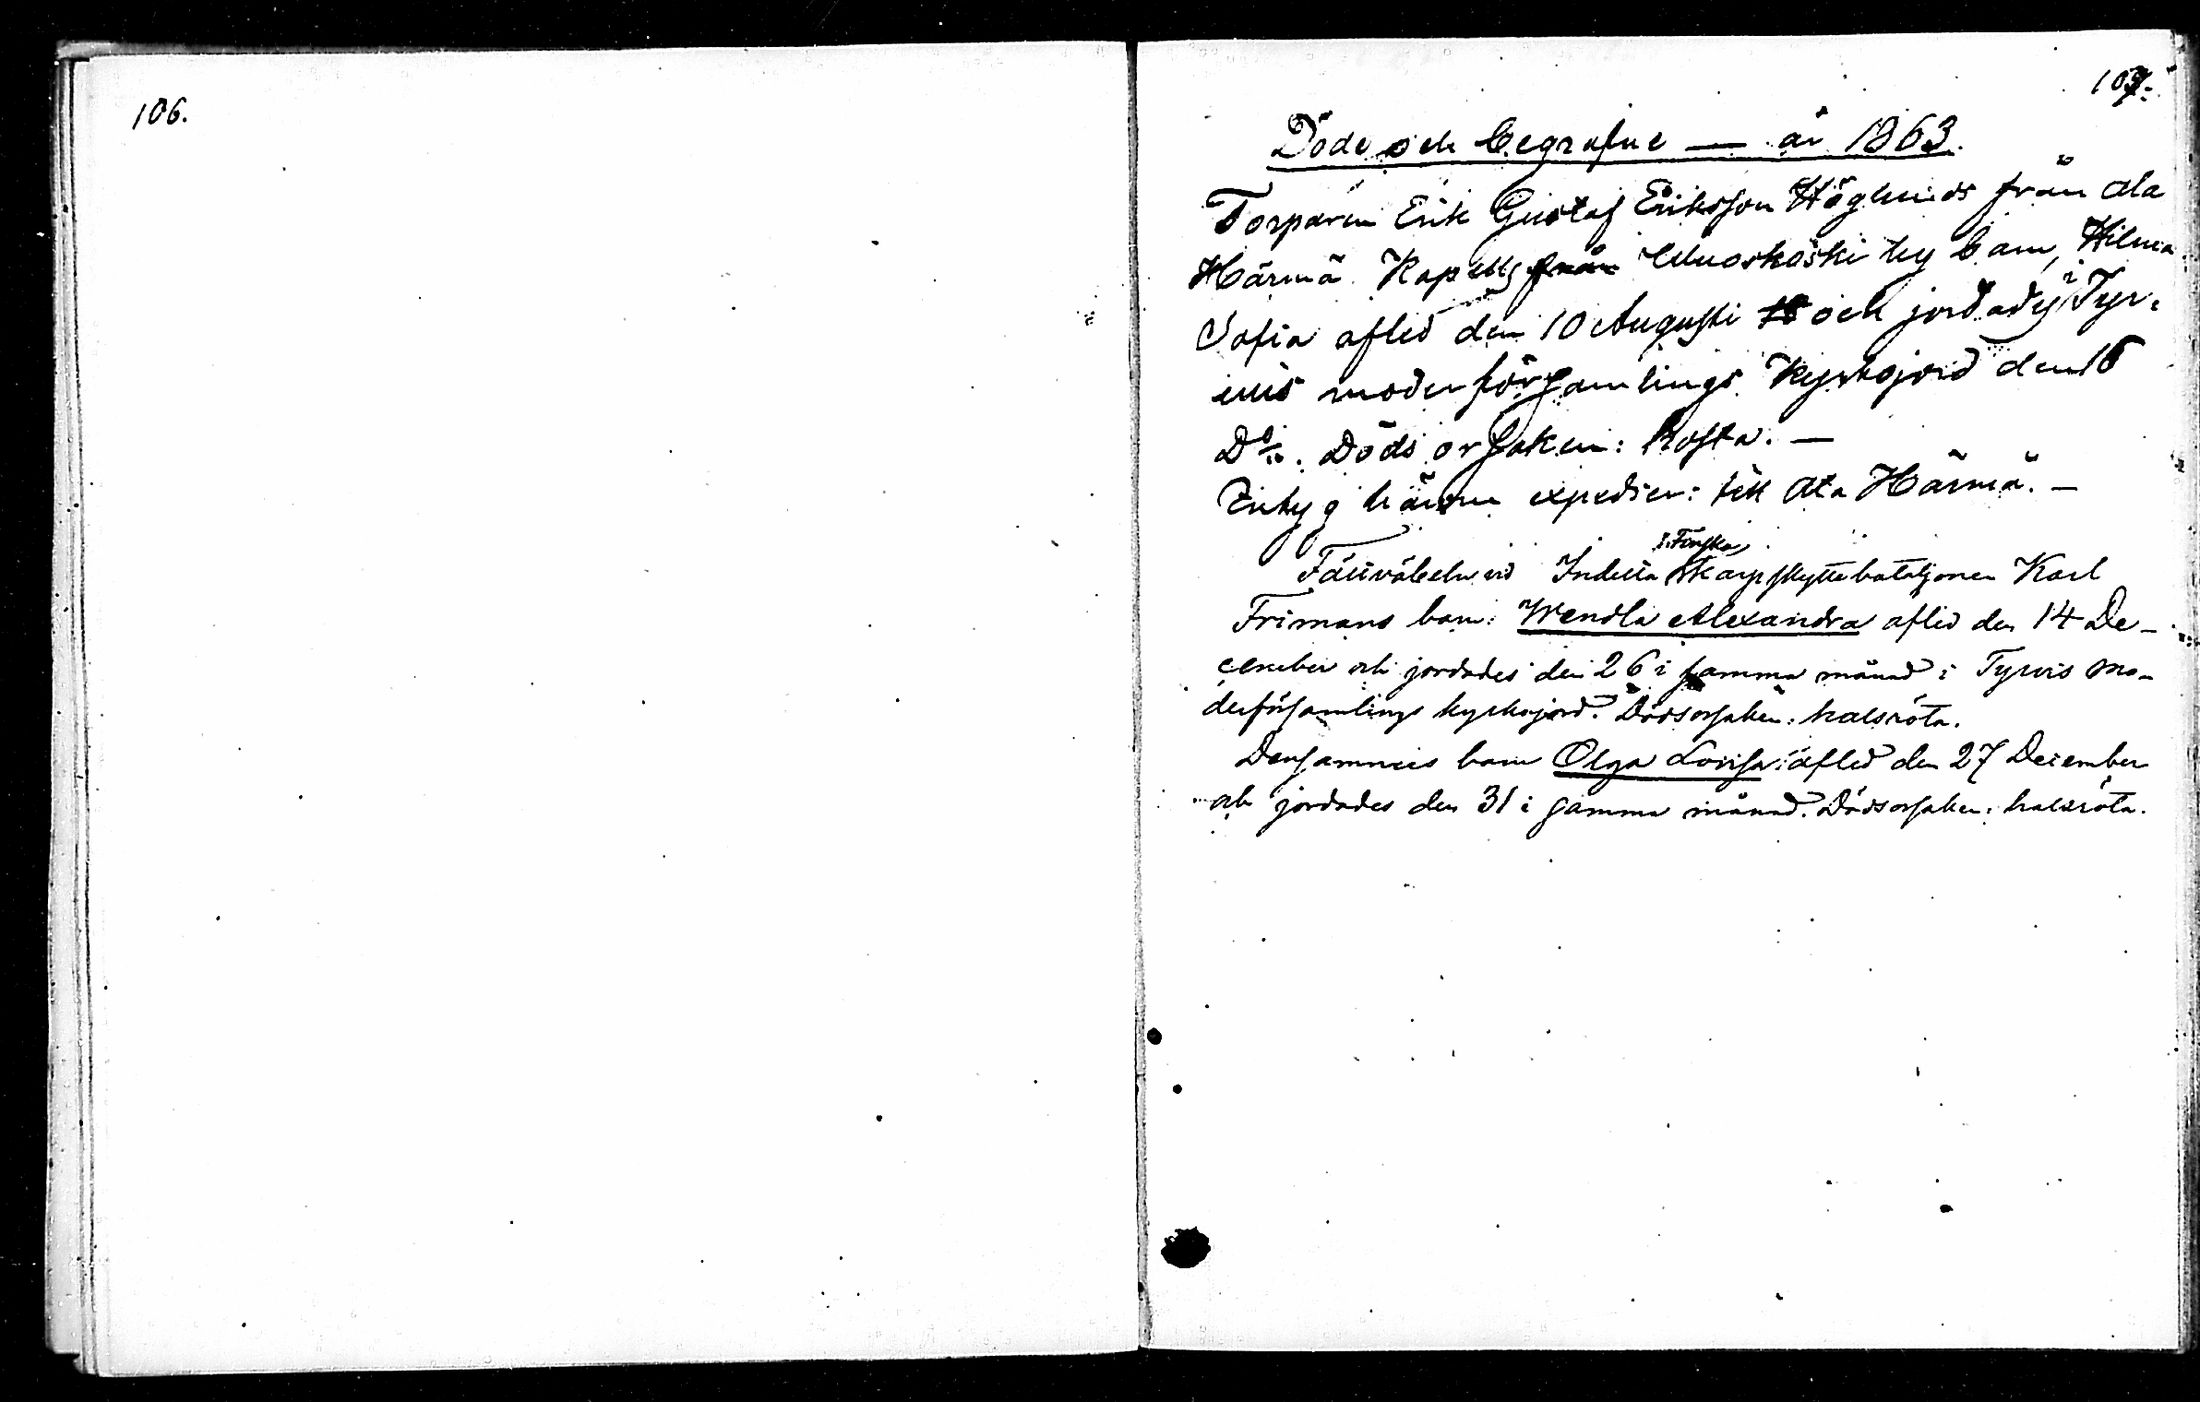 106.
107.
Döde och begrafne — år 1863.
Torparen Erik Gustaf Eriksson Höglunds från Ala
Härmä Kapells från Luoskoski by barn, Hilma
Sofia afled den 10 Augusti 18 och jordades i Tyr-
vis moderförsamlings Kyrkojord den 16
D:o. Döds orsaken: Rosta. —
Intyg härom expedier: till Ala Härmä. —
I Finska
Fältväbeln vid Indelta skarpskyttebataljonen Karl
Frimans barn: Wendla Alexandra afled den 14 De-
cember och jordades den 26 i samma månad i Tyrvis mo-
derförsamlings kyrkojord. Dödsorsaken: halsröta.
Densammes barn Olga Lovisa: afled den 27 December
och jordades den 31 i samma månad. Dödsorsaken: halsröta.